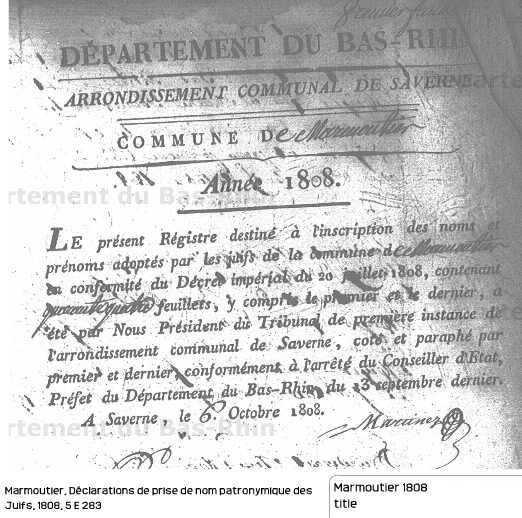 premier feuillet
DÉPARTEMENT DU BAS-RHIN
ARRONDISSEMENT COMMUNAL DE SAVERNE
COMMUNE DE Marmoutier
Année 1808.
LE présent Régistre destiné à l'inscription des noms et
prénoms adoptés par les juifs de la commune de Marmoutier
en conformité du Décret impérial du 20 juillet 1808, contenant
quarante quatre feuillets, y compris le premier et le dernier, a
été par Nous Président du Tribunal de première instance de
l'arrondissement communal de Saverne, coté et paraphé par
premier et dernier conformément à l'arrêté du Conseiller d'Etat,
Préfet du Département du Bas-Rhin du 23 septembre dernier.
A Saverne, le 6 Octobre 1808.
Marmoutier, Déclarations de prise de nom patronymique des
Juifs, 1808, 5 E 283
Marmoutier 1808
title